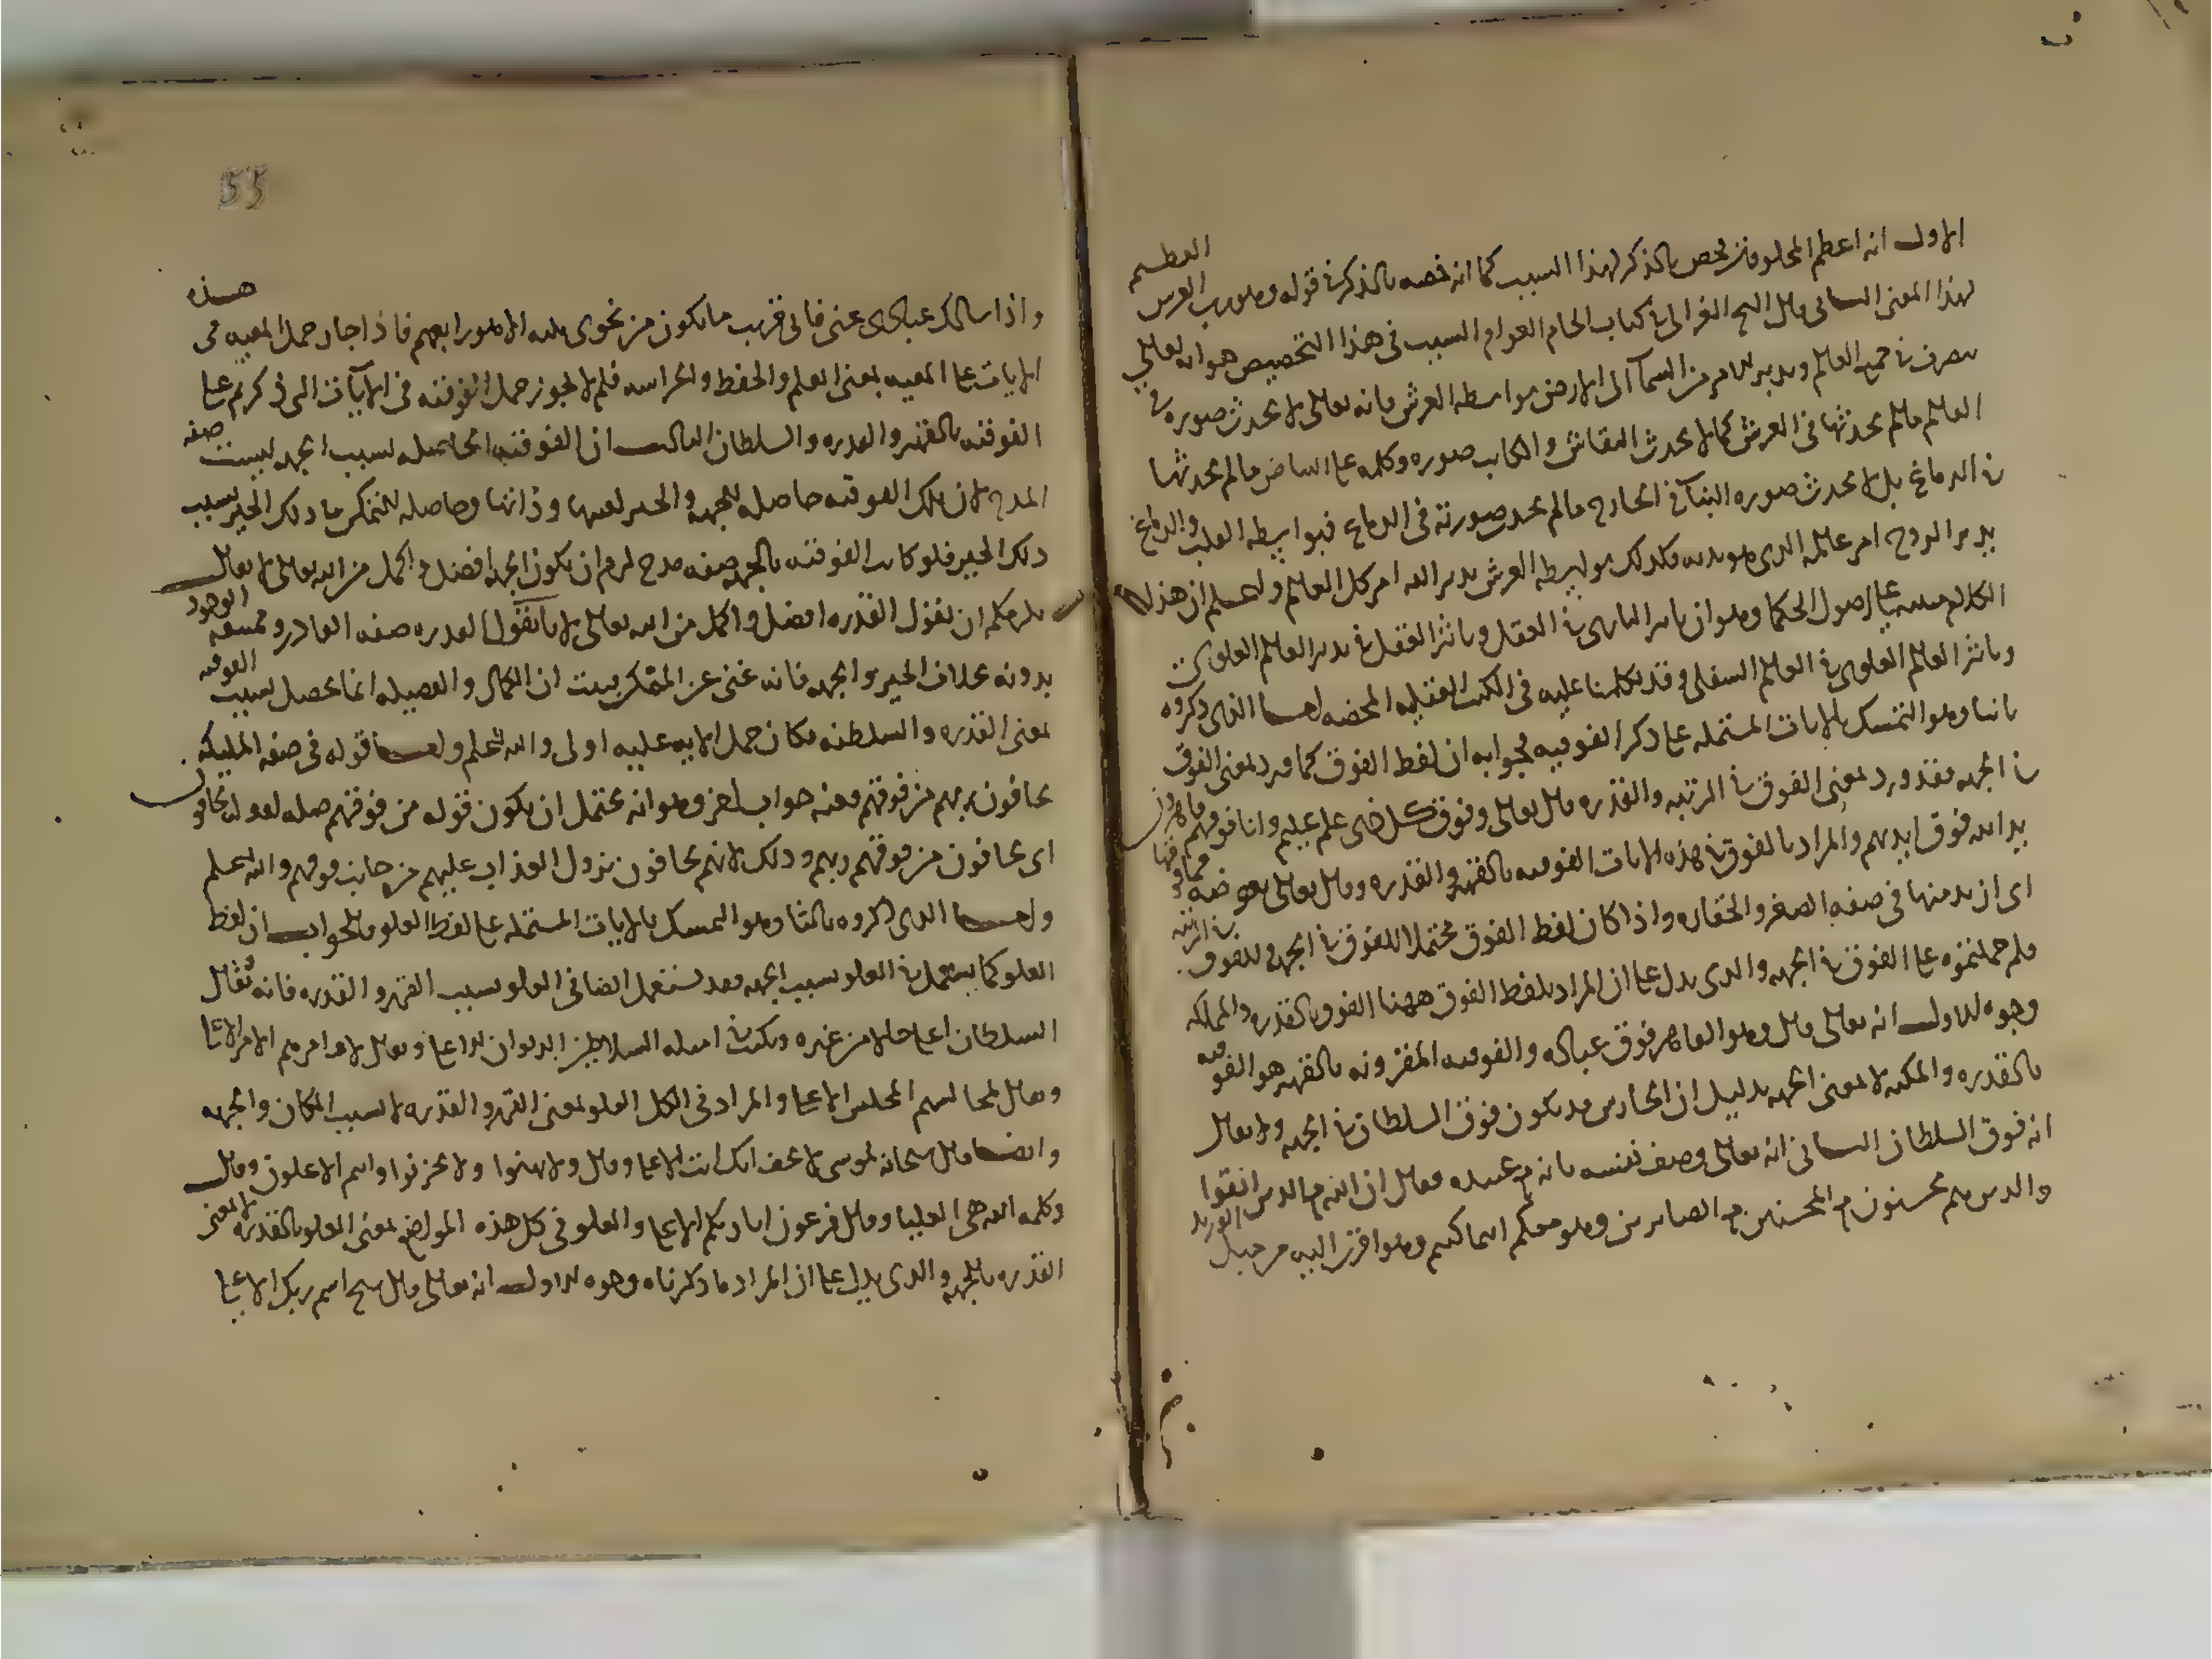 الاول انه اعظم المخلوقات فخص بالذكر لهذا السبب كما انه خصه بالذكر في قوله وهو رب العرش العظيم
لهذا المعنى الثاني قال الشيخ الغزالي في كتاب الجام العوام السبب في هذا التخصيص هو انه تعالى
يتصرف في جميع العالم ويدبر الامر من السما الى الارض بواسطه العرش فانه تعالى لا يحدث صوره في
العالم مالم يحدثها في العرش كما لا يحدث النقاش والكاتب صوره وكلمه على البياض مالم يحدثها
في الدماغ بل لا يحدث صوره البنا في الخارج مالم يحدث صورته في الدماغ فبواسطه القلب والدماغ
يدبر الروح امر عالمه الذي هو بدنه فكذلك بواسطه العرش يدبر الله امر كل العالم واعلم ان هذا
الكلام مبني على اصول الحكما وهو ان تاثير الباري في العقل وتاثير العقل في تدبير العالم العلوي
وتاثير العالم العلوي في العالم السفلي وقد تكلمنا عليه في الكتب العقليه المحضه اما الذي ذكروه
ثانيا وهو التمسك بالايات المشتمله على ذكر الفوقيه فجوابه ان لفظ الفوق كما ورد بمعنى الفوق
في الجهه فقد ورد بمعنى الفوق في المرتبه والقدره قال تعالى وفوق كل ذي علم عليم وانا فوقهم قاهرون
يد الله فوق ايديهم والمراد بالفوق في هذه الايات الفوقيه بالقهر والقدره وقال تعالى بعوضه فما فوقها
اي ازيد منها في صفه الصغر والحقاره واذا كان لفظ الفوق محتملا للفوق في الجهه وللفوق في الرتبه
فلم حملتموه على الفوق في الجهه والذي يدل على ان المراد بلفظ الفوق ههنا الفوق بالقدره والمملكه
وجوه الاول انه تعالى قال وهو القاهر فوق عباده والفوقيه المقرونه بالقهر هو الفوقيه
بالقدره والمكنه لا بمعنى الجهه بدليل ان الحارس قد يكون فوق السلطان في الجهه ولا يقال
انه فوق السلطان الثاني انه تعالى وصف نفسه بانه مع عبيده فقال ان الله مع الذين اتقوا
والذين هم محسنون مع المحسنين مع الصابرين وهو معكم اينما كنتم وهو اقرب اليه من حبل الوريد
55
واذا سالك عبادي عني فاني قريب ما يكون من نجوى ثلثه الا هو رابعهم فاذا جاز حمل المعيه في هذه
الايات على المعيه بمعنى العلم والحفظ والحراسه فلم لا يجوز حمل الفوقيه في الايات التي ذكرتم على
الفوقيه بالقهر والقدره والسلطان الثالث ان الفوقيه الحاصله بسبب الجهه ليست صفه
المدح لان تلك الفوقيه حاصله للجهه والحيز لعينها وذاتها وحاصله للمتمكن في ذلك الحيز بسبب
ذلك الحيز فلو كانت الفوقيه بالجهه صفه مدح لزم ان يكون الجهه افضل واكمل من الله تعالى لا يقال
يلزمكم ان نقول القدره افضل واكمل من الله تعالى لانا نقول القدره صفه القادر وممتنعه الوجود
بدونه بخلاف الحيز والجهه فانه غني عن المتمكن فثبت ان الكمال والفضيله انما يحصل بسبب الفوقيه
بمعنى القدره والسلطنه فكان حمل الايه عليه اولى والله اعلم واما قوله في صفه المليكه
يخافون ربهم من فوقهم ففيه جواب اخر وهو انه يحتمل ان يكون قوله من فوقهم صله لقوله يخافون
اي يخافون من فوقهم ربهم وذلك لانهم يخافون نزول العذاب عليهم من جانب فوقهم والله اعلم
واما الذي ذكروه ثالثا وهو التمسك بالايات المشتمله على لفظ العلو فالجواب ان لفظ
العلو كما يستعمل في العلو بسبب الجهه فقد يستعمل ايضا في العلو بسبب القهر والقدره فانه يقال
السلطان اعلى حالا من غيره ويكتب في امثله السلاطين الديوان الاعلى ويقال لاوامرهم الامر الاعلى
ويقال لمجالسهم المجلس الاعلى والمراد في الكل العلو بمعنى القهر والقدره لا بسبب المكان والجهه
وايضا قال سبحانه لموسى لا تخف انك انت الاعلى وقال ولا تهنوا ولا تحزنوا وانتم الاعلون وقال
وكلمه الله هي العليا وقال فرعون انا ربكم الاعلى والعلو في كل هذه المواضع بمعنى العلو بالقدره لا بمعنى
القدره بالجهه والذي يدل على ان المراد ما ذكرناه وجوه الاول انه تعالى قال سبح اسم ربك الاعلى